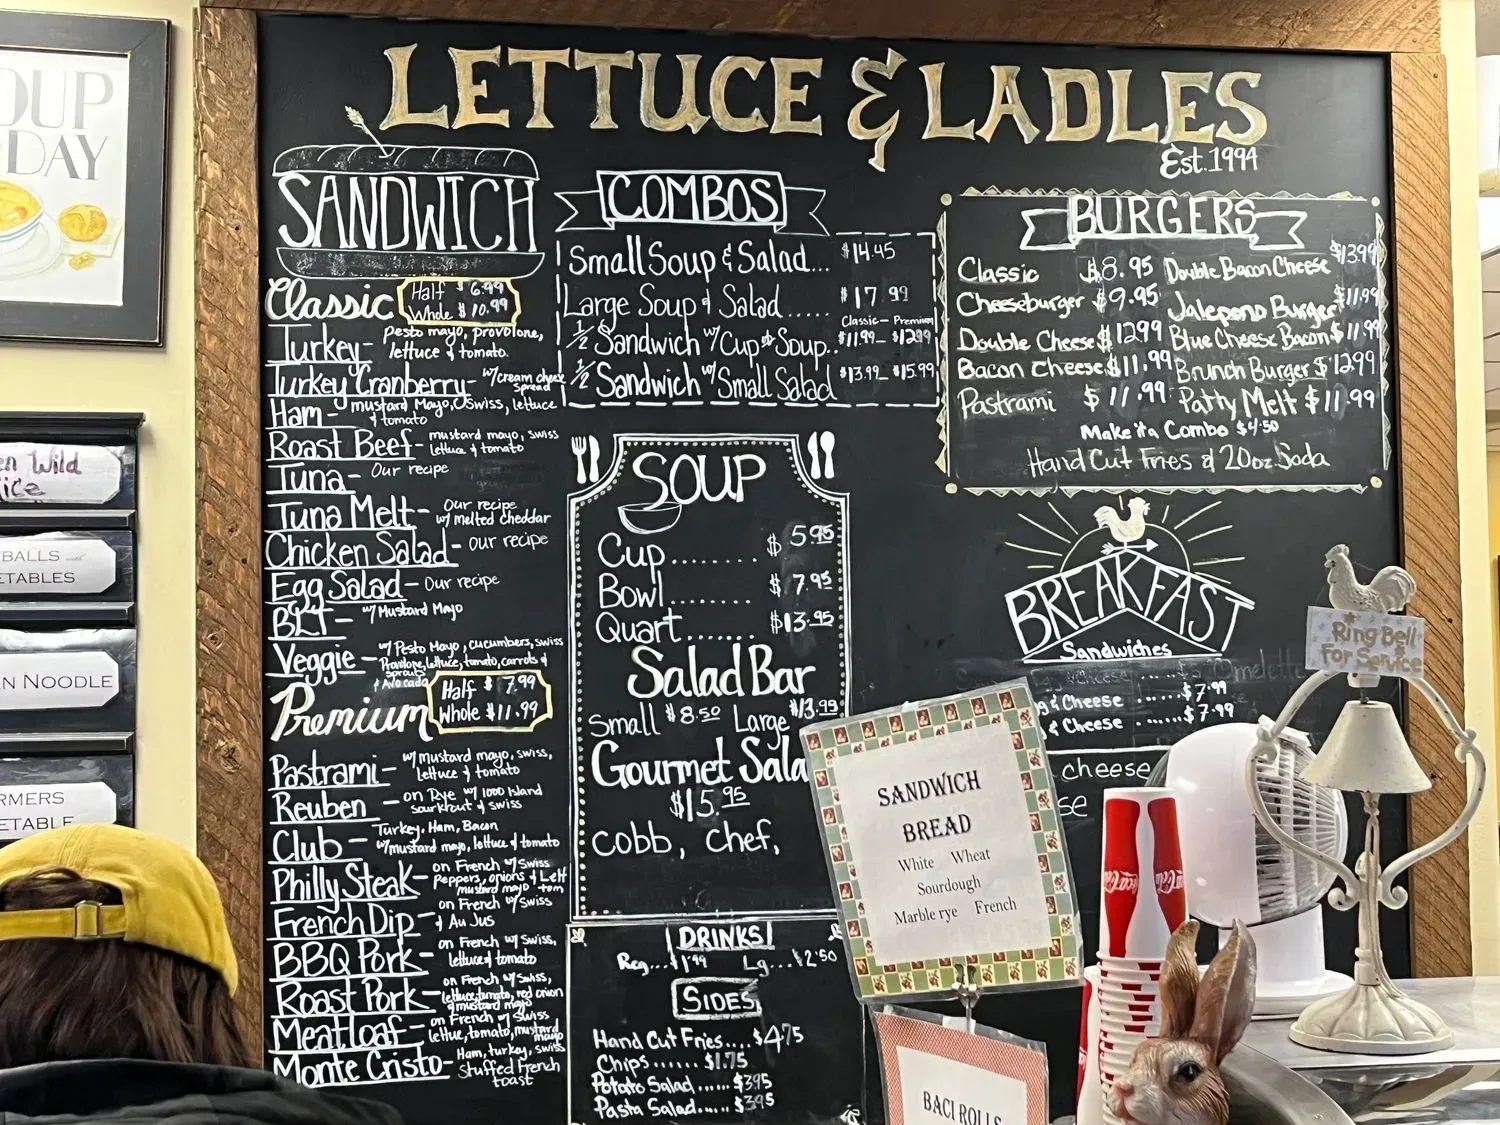 LETTUCE & LADLES
Est. 1994
OUP
DAY
SANDWICH
Classic
Half $6.99
Whole $10.99
Turkey - Pesto mayo, provolone,
lettuce & tomato.
Turkey Cranberry - w/cream cheese
spread
Ham - mustard Mayo, Swiss, lettuce
& tomato
Roast Beef - mustard mayo, swiss
lettuce & tomato
Tuna - Our recipe
Tuna Melt - Our recipe
w/ melted cheddar
Chicken Salad - our recipe
Egg Salad - Our recipe
BLT - w/ Mustard Mayo
Veggie - w/ Pesto Mayo, cucumbers, swiss
Provolone, lettuce, tomato, carrots &
sprouts
& Avocado
Premium
Half $7.99
Whole $11.99
Pastrami - w/ mustard mayo, swiss,
lettuce & tomato
Reuben - on Rye w/ 1000 Island
sourkraut & swiss
Club - Turkey, Ham, Bacon
w/mustard mayo, lettuce & tomato
Philly Steak - on French w/ Swiss
peppers, onions & Lett
mustard mayo tom
French Dip - on French w/ Swiss
& Au Jus
BBQ Pork - on French w/ Swiss,
lettuce & tomato
Roast Pork - on French w/ Swiss,
lettuce, tomato, red onion
& mustard mayo
Meatloaf - on French w/ Swiss
lettue, tomato, mustard
mayo
Monte Cristo - Ham, turkey, swiss
Stuffed French
toast
COMBOS
Small Soup & Salad... $14.45
Large Soup & Salad..... $17.99
Classic - Premium
1/2 Sandwich w/ Cup of Soup.. $11.99 - $12.99
1/2 Sandwich w/ Small Salad $13.99 - $15.99
SOUP
Cup........ $5.95
Bowl........ $7.95
Quart....... $13.95
Salad Bar
Small $8.50 Large $13.99
Gourmet Sala
$15.95
cobb, chef,
DRINKS
Reg...$1.99 Lg...$2.50
SIDES
Hand Cut Fries....$4.75
Chips...... $1.75
Potato Salad...... $3.95
Pasta Salad...... $3.95
BURGERS
Classic $8.95 Double Bacon Cheese $13.99
Cheeseburger $9.95 Jalepeno Burger $11.99
Double Cheese $12.99 Blue Cheese Bacon $11.99
Bacon Cheese $11.99 Brunch Burger $12.99
Pastrami $11.99 Patty Melt $11.99
Make it a Combo $4.50
Hand Cut Fries & 20oz Soda
BREAKFAST
Sandwiches
& Cheese ......$7.99
& Cheese .......$7.99
cheese
Ring Bell
For Service
SANDWICH
BREAD
White Wheat
Sourdough
Marble rye French
BACI ROLLS
en Wild
ice
BALLS and
ETABLES
EN NOODLE
RMERS
ETABLE
Coca-Cola